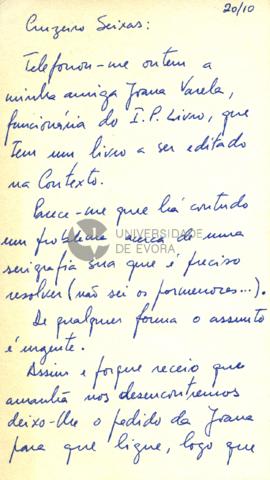 20/10
Cruzeiro Seixas:
Telefonou-me ontem a
minha amiga Joana Varela,
funcionária do I.P. Livro, que
tem um livro a ser editado
na Contexto.
Parece-me que há contudo
um problema acerca de uma
serigrafia sua que é preciso
resolver (não sei os pormenores...).
UNIVERSIDADE
DE EVORA
De qualquer forma o assunto
é urgente.
Assim e porque receio que
amanhã nos desencontremos
deixo-lhe o pedido da Joana
para que ligue, logo que